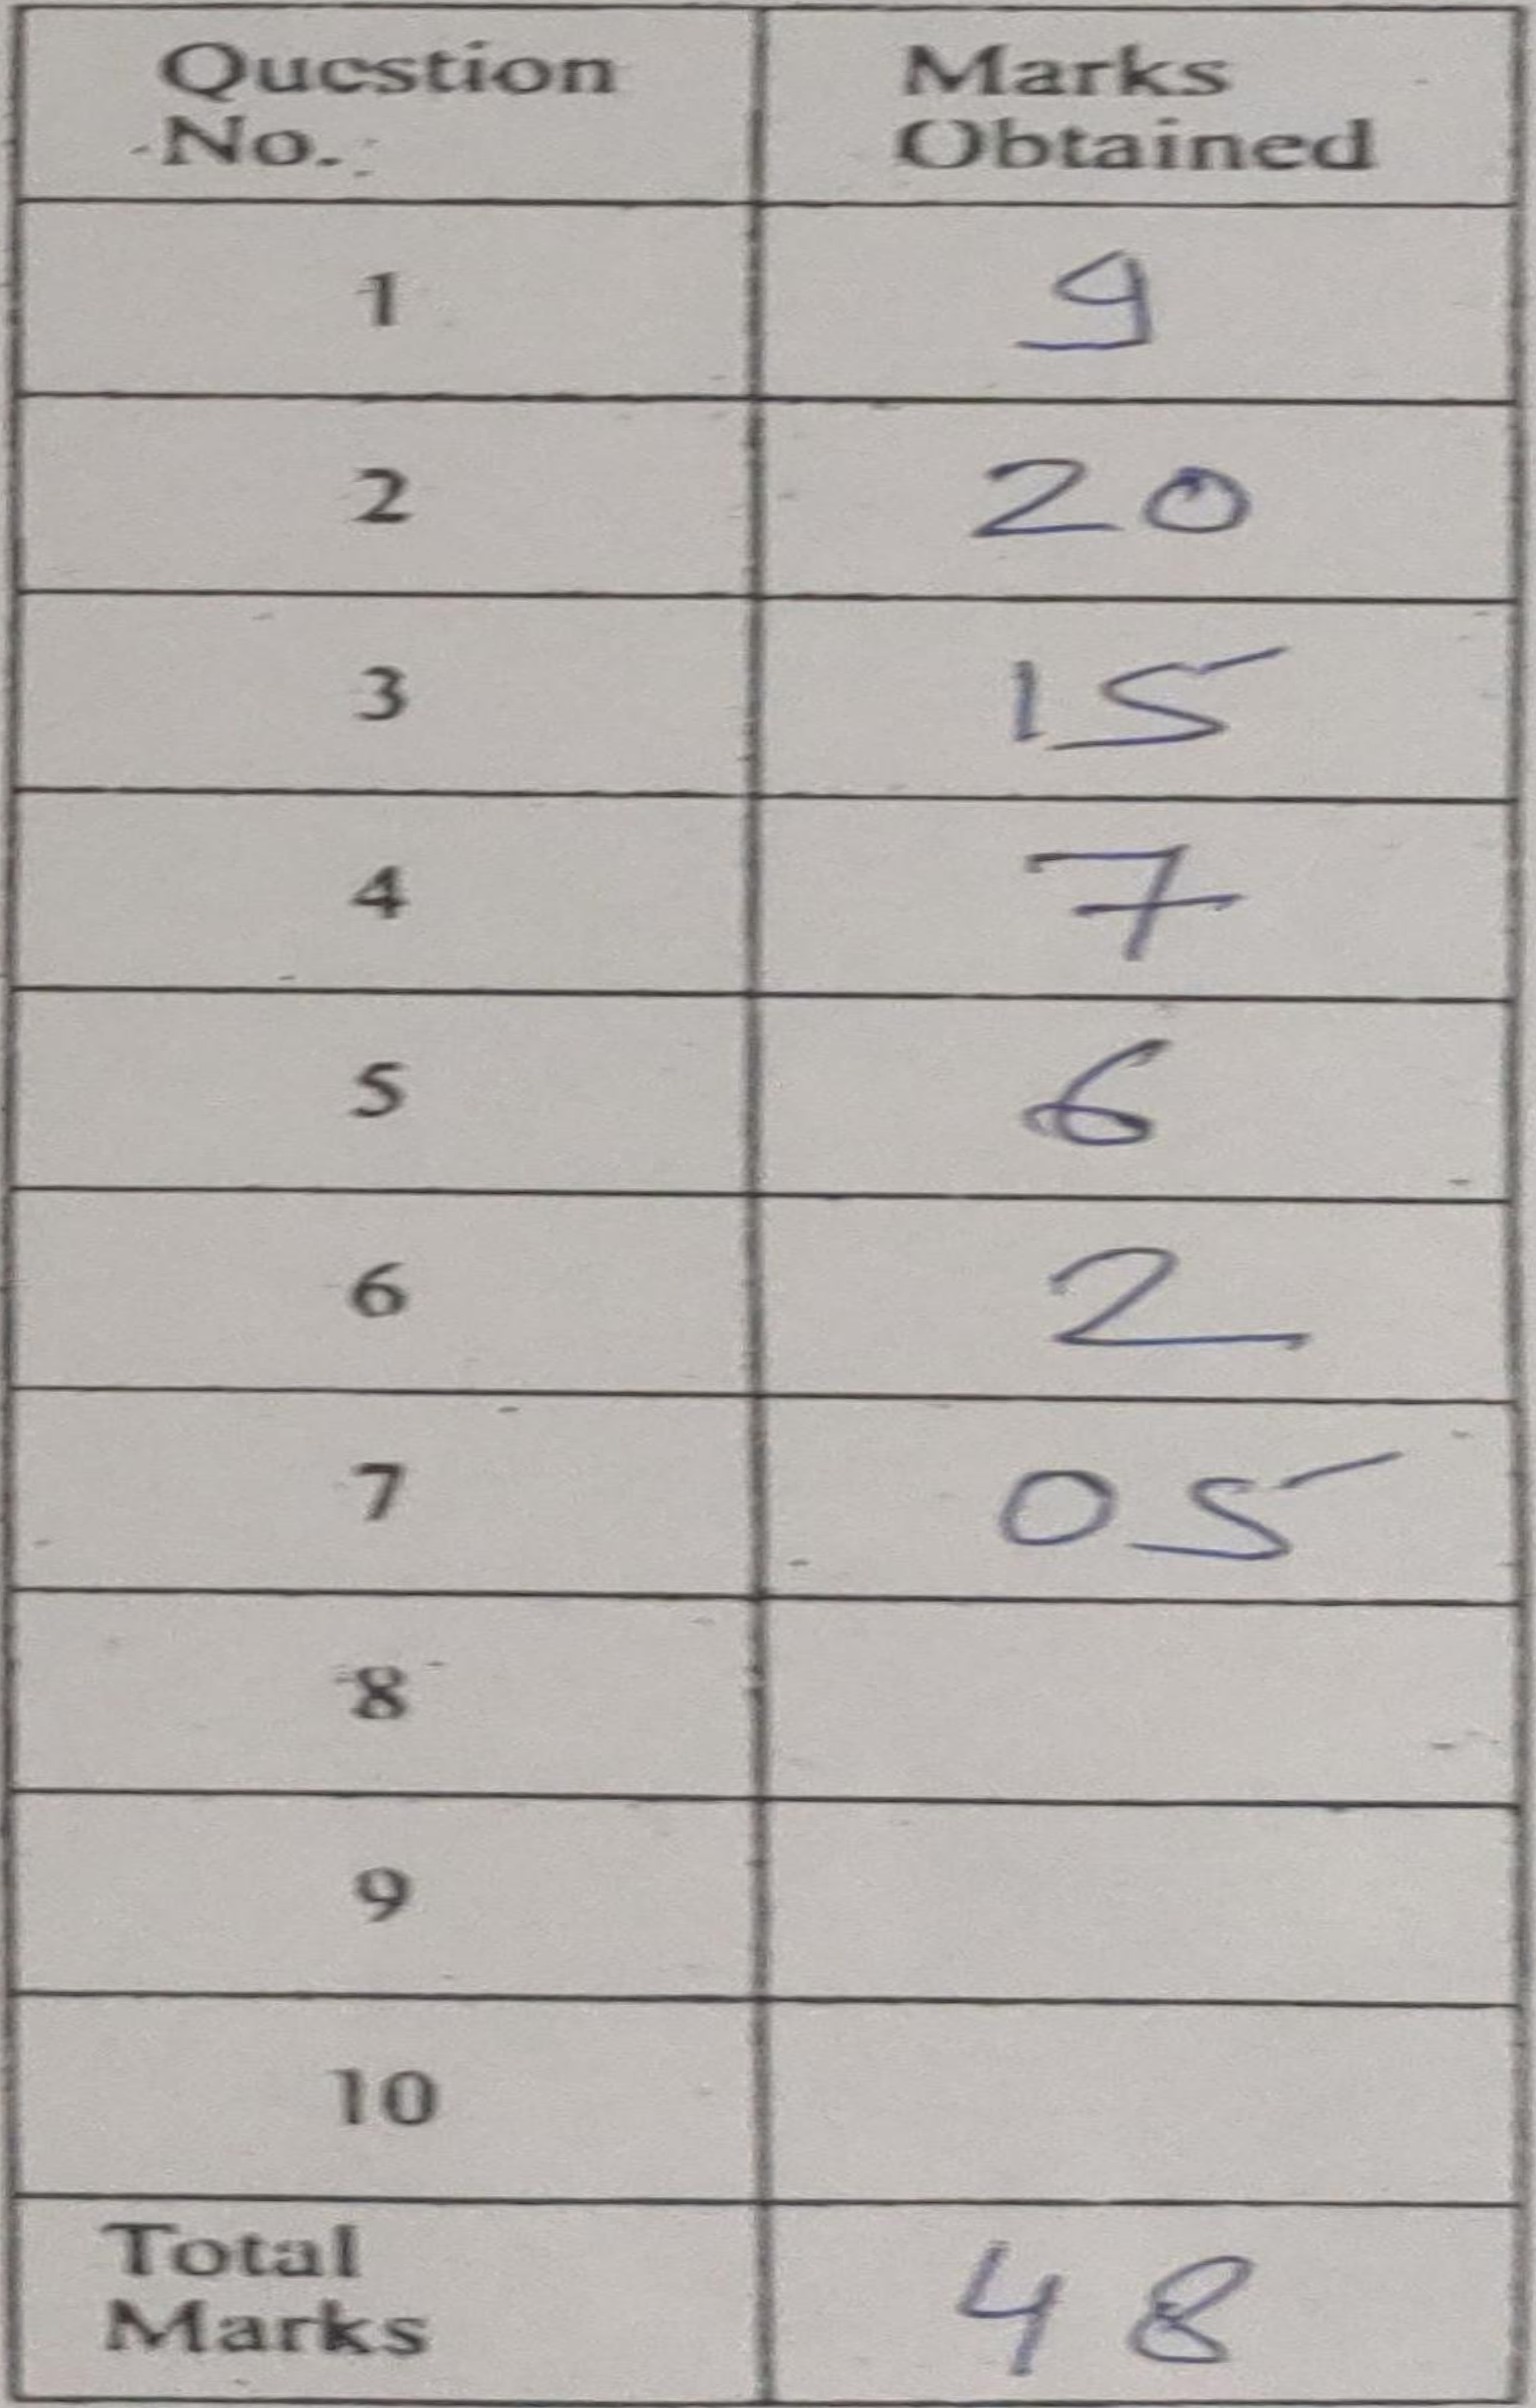 Question Marks
No. Obtained
1 9
2 20
3 15
4 7
5 6
6 2
7 05
8
9
10
Total
Marks 48